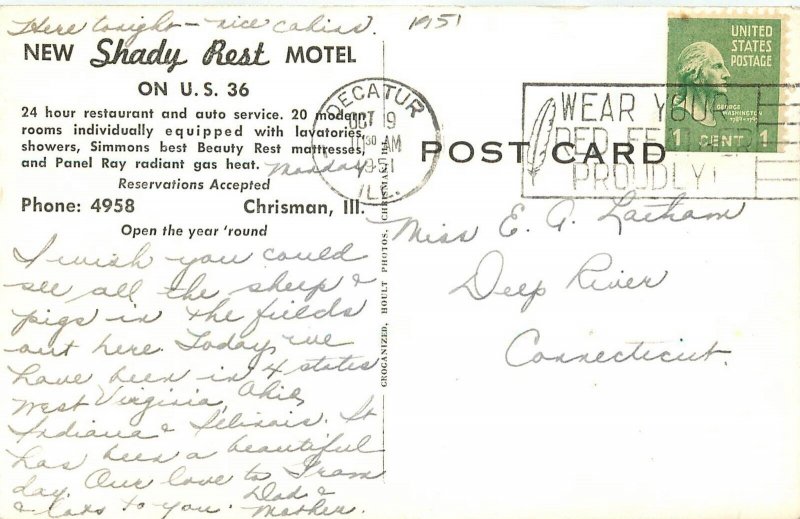 Here tonight — nice cabins.
1951
NEW Shady Rest MOTEL
ON U.S. 36
24 hour restaurant and auto service. 20 modern
rooms individually equipped with lavatories,
showers, Simmons best Beauty Rest mattresses,
and Panel Ray radiant gas heat.
Monday
Reservations Accepted
Phone: 4958 Chrisman, Ill.
Open the year 'round
I wish you could
see all the sheep &
pigs in the fields
out here. Today, we
have been in 4 states
West Virginia, Ohio,
Indiana & Illinois. It
has been a beautiful
day. Our love to Gram
& lots to you. Dad &
Mother.
CROGANIZED, HOULT PHOTOS, CHRISMAN, ILL.
DECATUR
OCT 19
30 AM
1951
ILL.
WEAR YOUR
RED FEATHER
PROUDLY!
UNITED
STATES
POSTAGE
GEORGE
WASHINGTON
1 CENT 1
POST CARD
Miss E. A. Latham
Deep River
Connecticut.